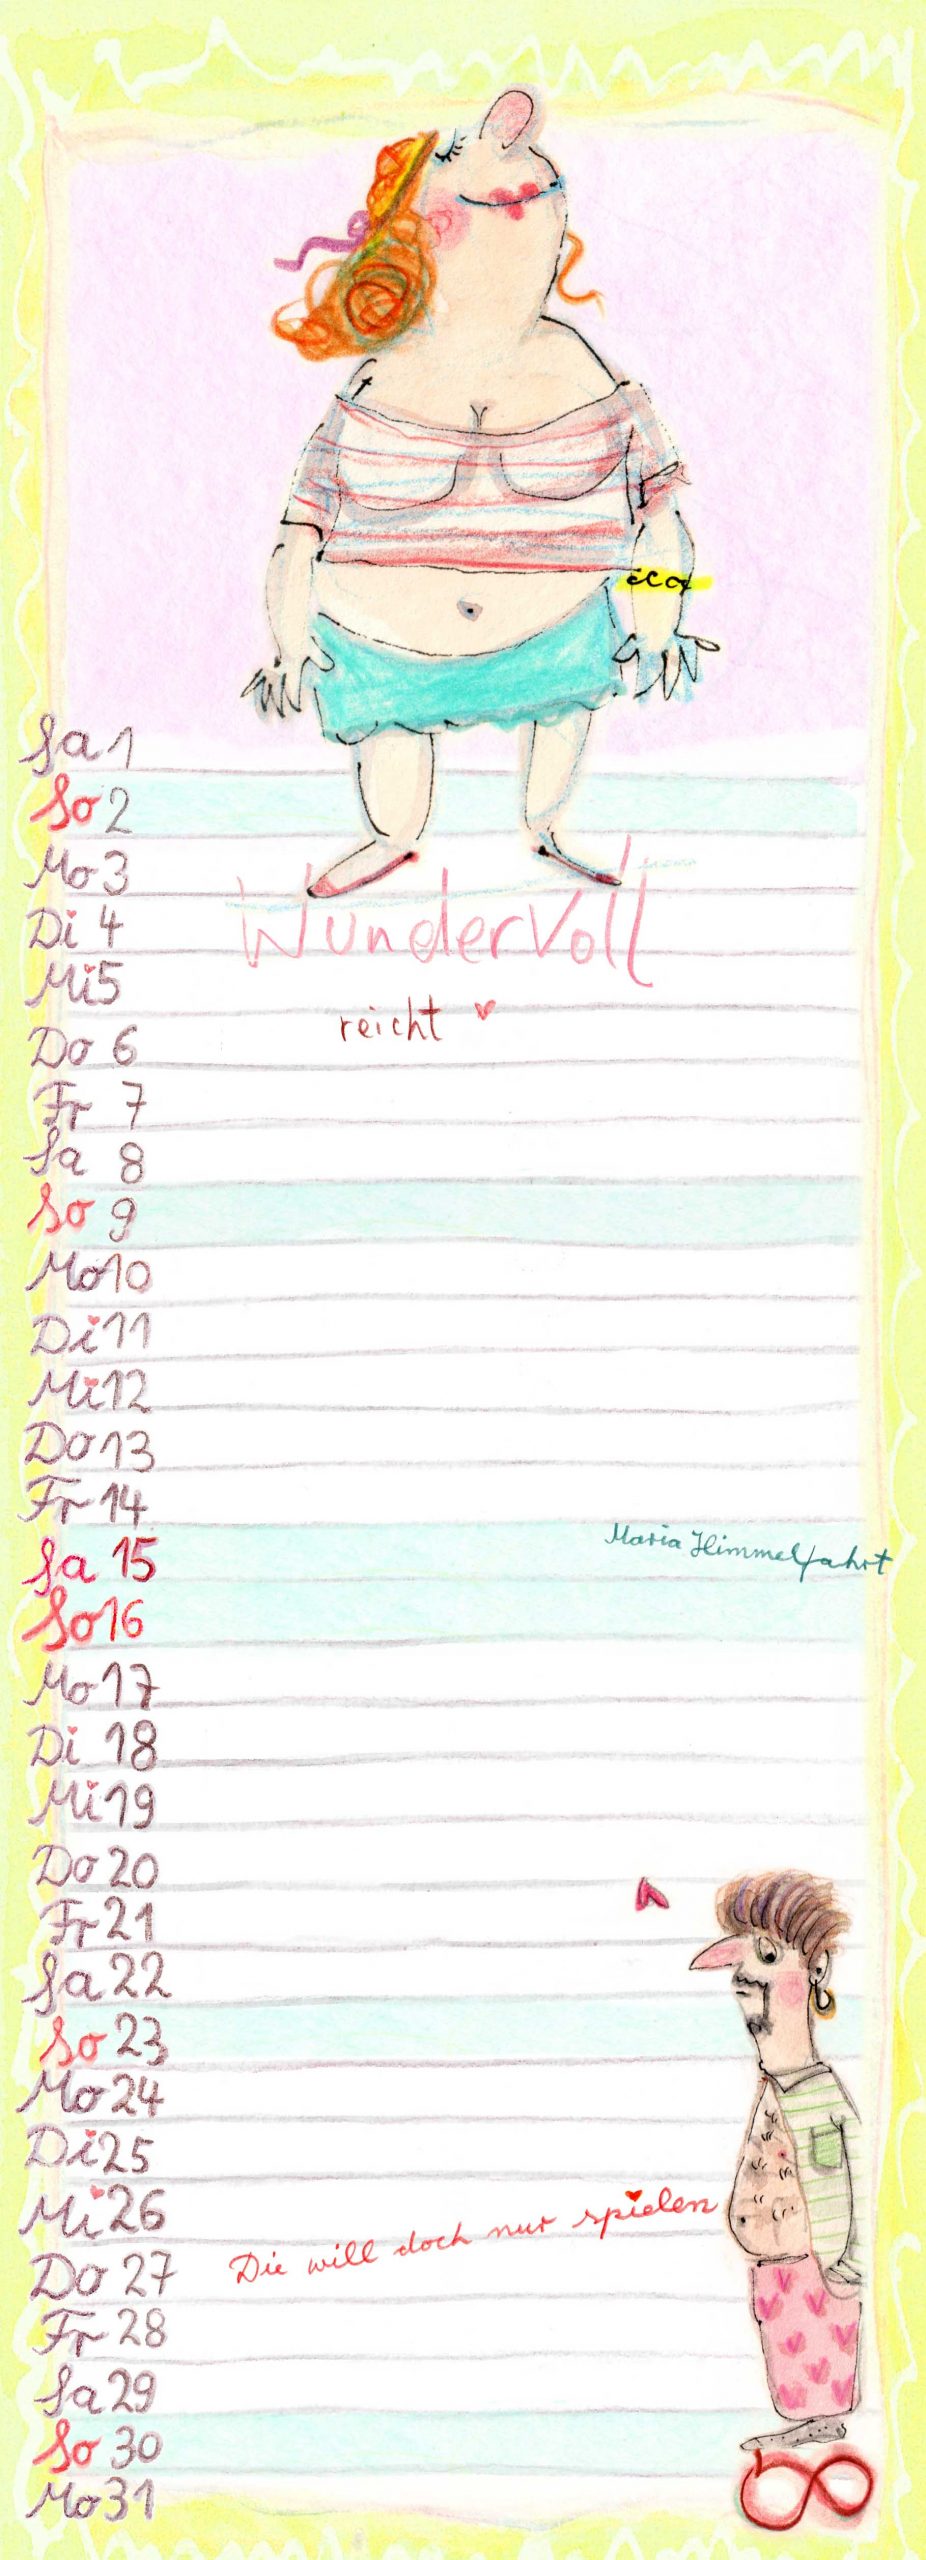 Sa 1
So 2
Mo 3
Di 4
Mi 5
Wundervoll
reicht
Do 6
Fr 7
Sa 8
So 9
Mo 10
Di 11
Mi 12
Do 13
Fr 14
Maria Himmelfahrt
Sa 15
So 16
Mo 17
Di 18
Mi 19
Do 20
Fr 21
Sa 22
So 23
Mo 24
Di 25
Mi 26
Die will doch nur spielen
Do 27
Fr 28
Sa 29
So 30
Mo 31